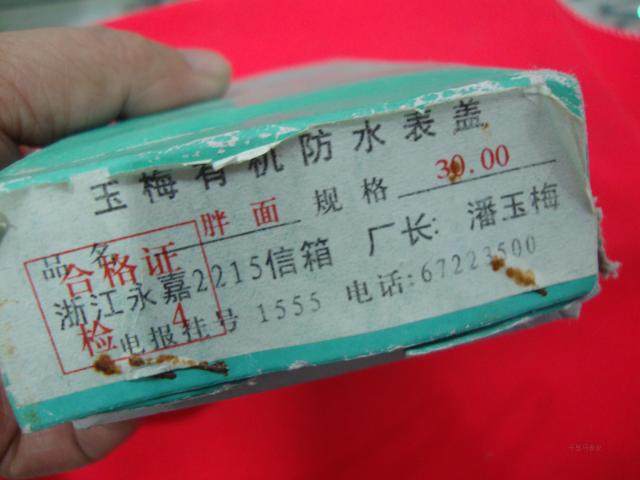 玉梅有机防水表盖
品名 胖面 规格 30.00
浙江永嘉2215信箱 厂长: 潘玉梅
电报挂号 1555 电话:67223500
合格证
检 4